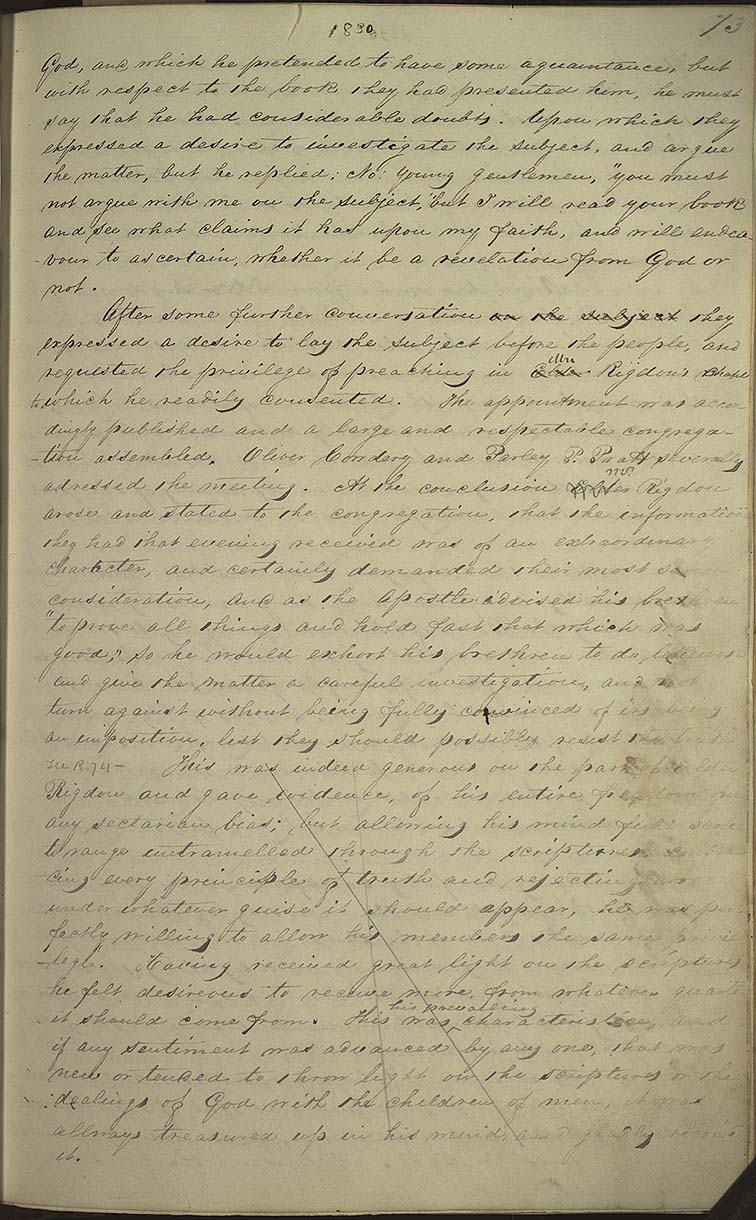 1830
73
God, and which he pretended to have some aquaintance, but
with respect to the book they had presented him, he must
say that he had considerable doubts. Upon which they
expressed a desire to investigate the subject, and argue
the matter, but he replied; No: young gentlemen, "you must
not argue with me on the subject," but I will read your book
and see what claims it has upon my faith, and will endea
-vour to ascertain, whether it be a revelation from God or
not.
After some further conversation on the subject they
expressed a desire to lay the subject before the people, and
requested the privilege of preaching in Elder Mr Rigdon's chapel
to which he readily consented. The appointment was accor-
dingly published and a large and respectable congrega-
-tion assembled. Oliver Cowdery and Parley P. Pratt severally
adressed the meeting. At the conclusion Mr Rigdon
arose and stated to the congregation, that the information
they had that evening received was of an extraordinary
charecter, and certainly demanded their most
consideration, and as the apostle advised his brethren
"to prove all things and hold fast that which was
good," so he would exhort his brethren to do likewise
and give the matter a careful investigation, and not
turn against without being fully convinced of its being
an imposition, lest they should possibly resist the truth
This was indeed generous on the part of elder
Rigdon and gave evidence, of his entire freedom from
any sectarian bias; but allowing his mind full scope
to range untramelled through the scriptures,
cing every principle of truth and rejecting
under whatever guise it should appear, he was per
fectly willing to allow his members the same privi
-lege. Having received great light on the scriptures
he felt desireous to receive more, from whatever quarter
it should come from. This was his prevailing characteristic, and
if any sentiment was advanced by any one, that was
new or tended to throw light on the scriptures or the
dealings of God with the children of men, it was
allways treasured up in his mind, and gladly
it.